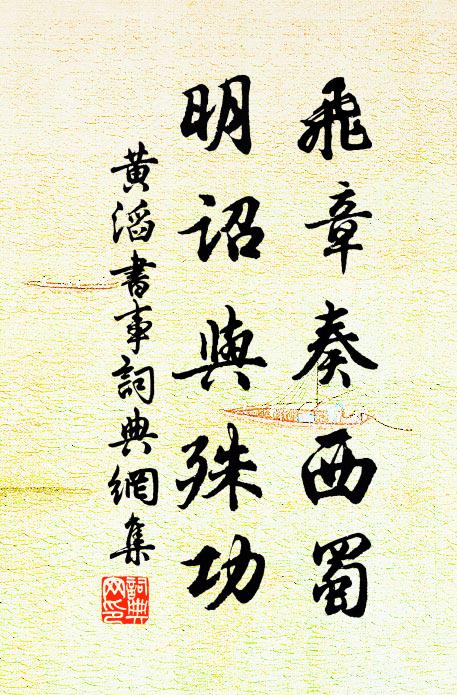 飛章奏西蜀
明詔與殊功
黃滔書事詞典網集
詞典
网印